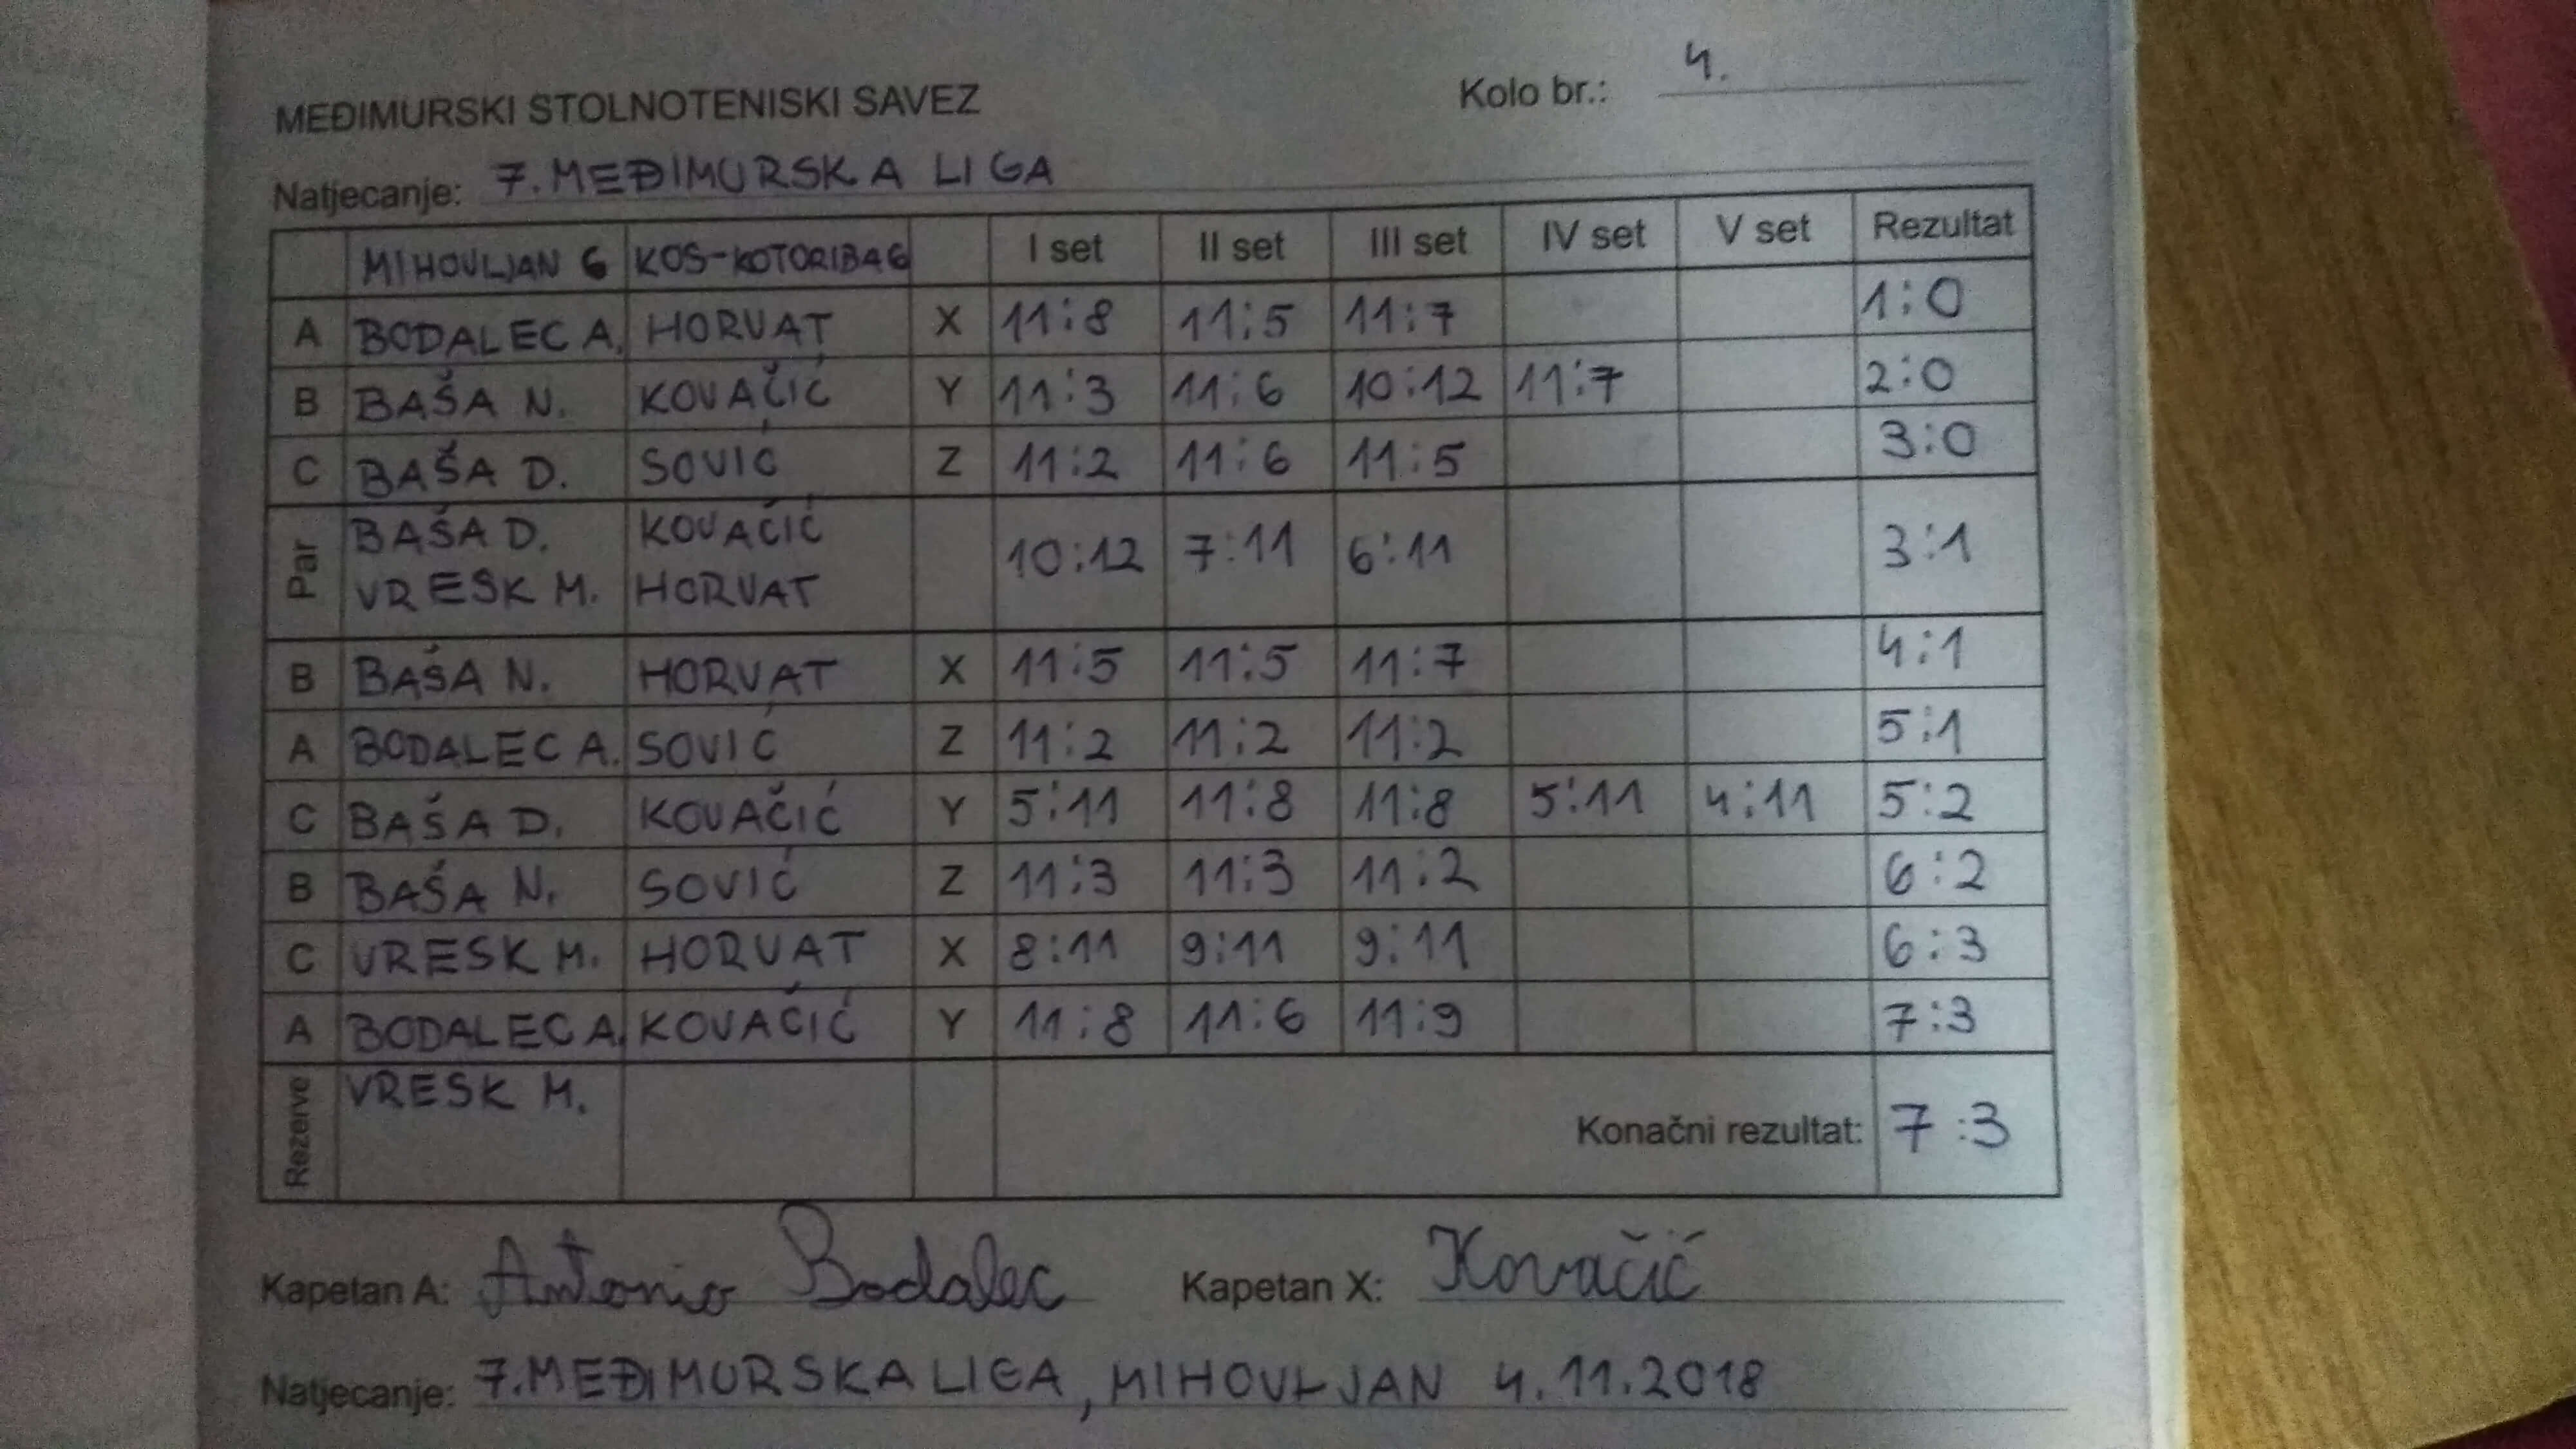 MEĐIMURSKI STOLNOTENISKI SAVEZ Kolo br.: 4.
Natjecanje: 7. MEĐIMURSKA LIGA
MIHOVLJAN 6 KOS-KOTORIBA 6 I set II set III set IV set V set Rezultat
A BODALEC A. HORVAT X 11:8 11:5 11:7 1:0
B BAŠA N. KOVAČIĆ Y 11:3 11:6 10:12 11:7 2:0
C BAŠA D. SOVIĆ Z 11:2 11:6 11:5 3:0
Par BAŠA D. KOVAČIĆ 10:12 7:11 6:11 3:1
VRESK M. HORVAT
B BAŠA N. HORVAT X 11:5 11:5 11:7 4:1
A BODALEC A. SOVIĆ Z 11:2 11:2 11:2 5:1
C BAŠA D. KOVAČIĆ Y 5:11 11:8 11:8 5:11 4:11 5:2
B BAŠA N. SOVIĆ Z 11:3 11:3 11:2 6:2
C VRESK M. HORVAT X 8:11 9:11 9:11 6:3
A BODALEC A. KOVAČIĆ Y 11:8 11:6 11:9 7:3
Rezerve VRESK M. Konačni rezultat: 7:3
Kapetan A: Antonio Bodalec Kapetan X: Kovačić
Natjecanje: 7. MEĐIMURSKA LIGA, MIHOVLJAN 4.11.2018